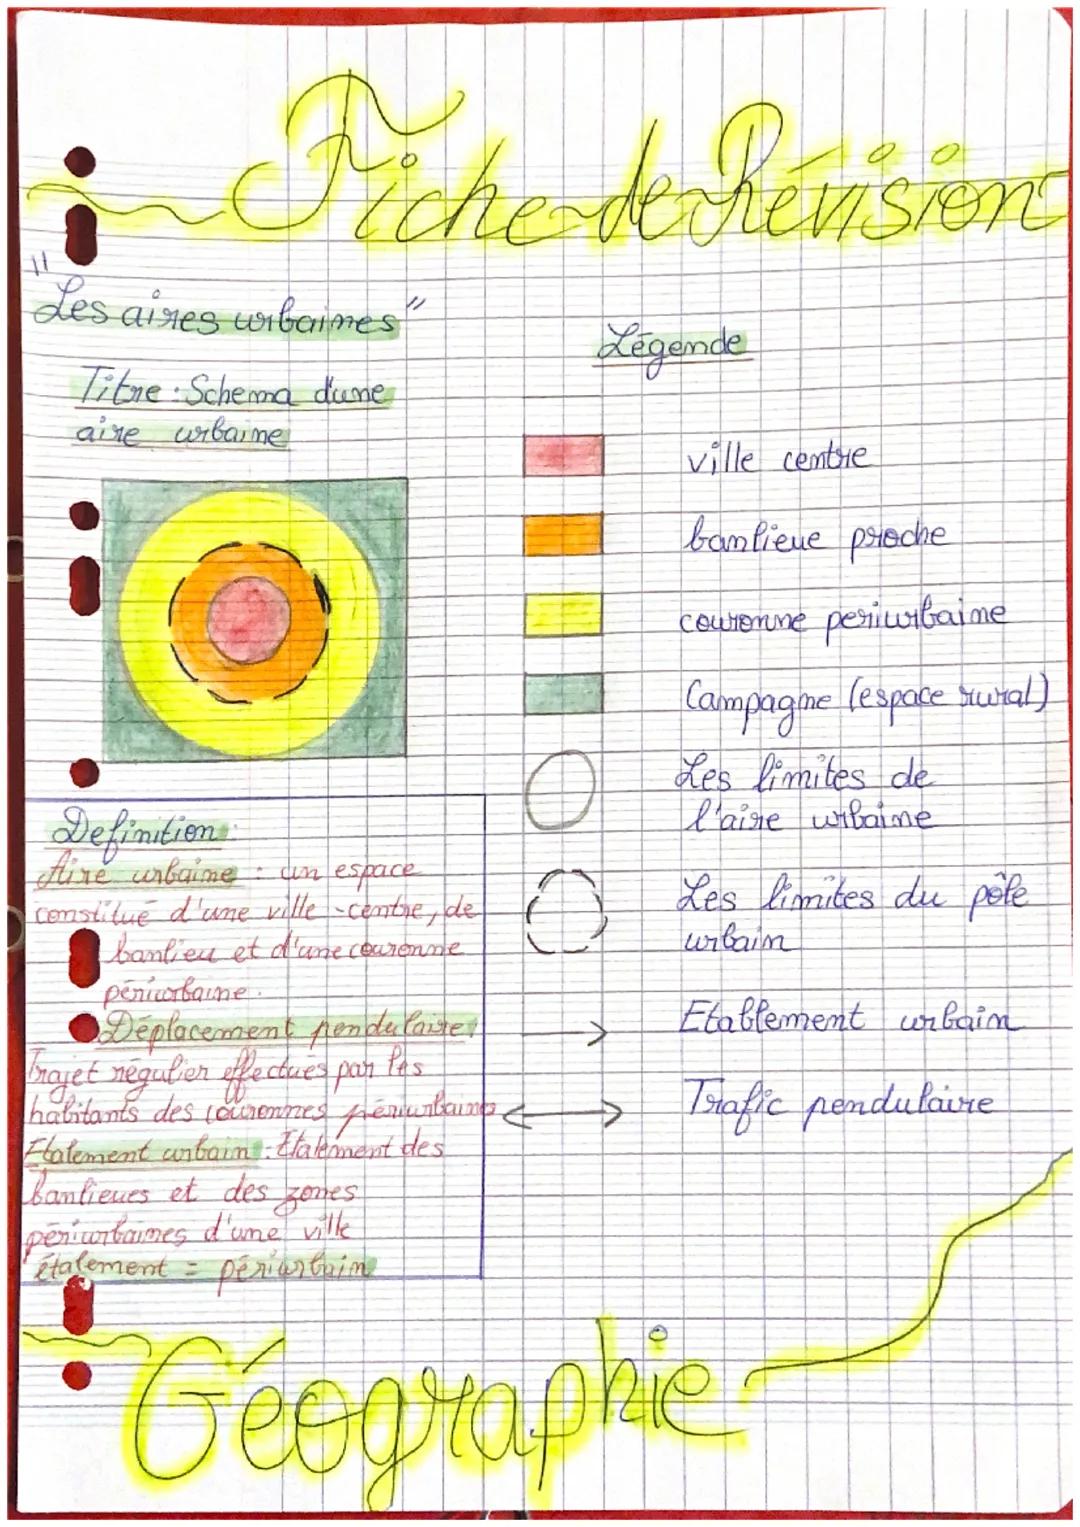 Fiche de Révision
"Les aires urbaines"
Titre : Schema d'une
aire urbaine
Légende
ville centre
banlieue proche
couronne periurbaine
Campagne (espace rural)
Les limites de
l'aire urbaine
Les limites du pôle
urbain
Etablement urbain
Trafic pendulaire
Definition :
Aire urbaine : un espace
constitué d'une ville-centre, de
banlieu et d'une couronne
périurbaine.
Déplacement pendulaire :
Trajet régulier effectués par les
habitants des couronnes périurbaines
Etalement urbain : Etalement des
banlieues et des zones
périurbaines d'une ville
étalement = périurbain
Géographie